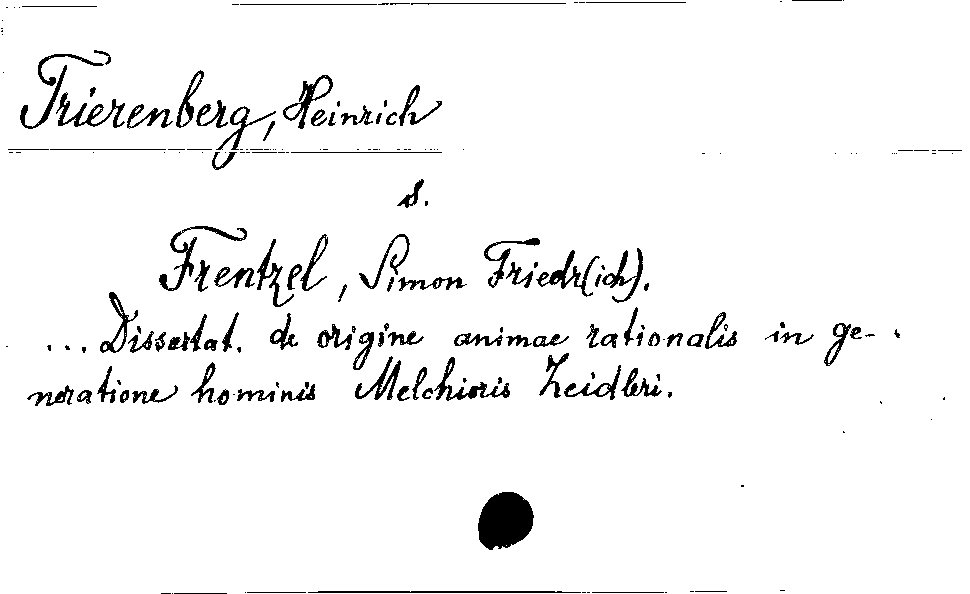 Trierenberg, Heinrich
s.
Frentzel, Simon Friedr(ich).
... Dissertat. de origine animae rationalis in ge-
neratione hominis Melchioris Zeidleri.